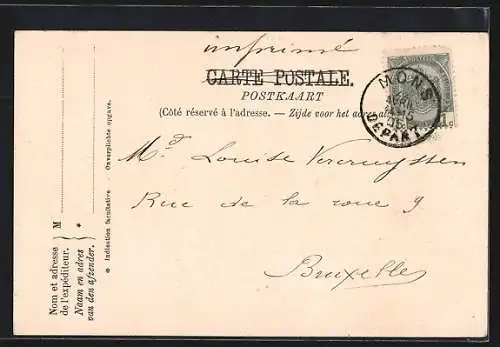 imprimé
CARTE POSTALE.
POSTKAART
(Côté réservé à l'adresse. — Zijde voor het adres
MONS
DEPART
Md Louise Vercruyssen
Rue de la roue 9
Bruxelles
Nom et adresse
de l'expéditeur.
Naam en adres
van den afzender.
M
*
* Indication facultative. Onverplichte opgave.